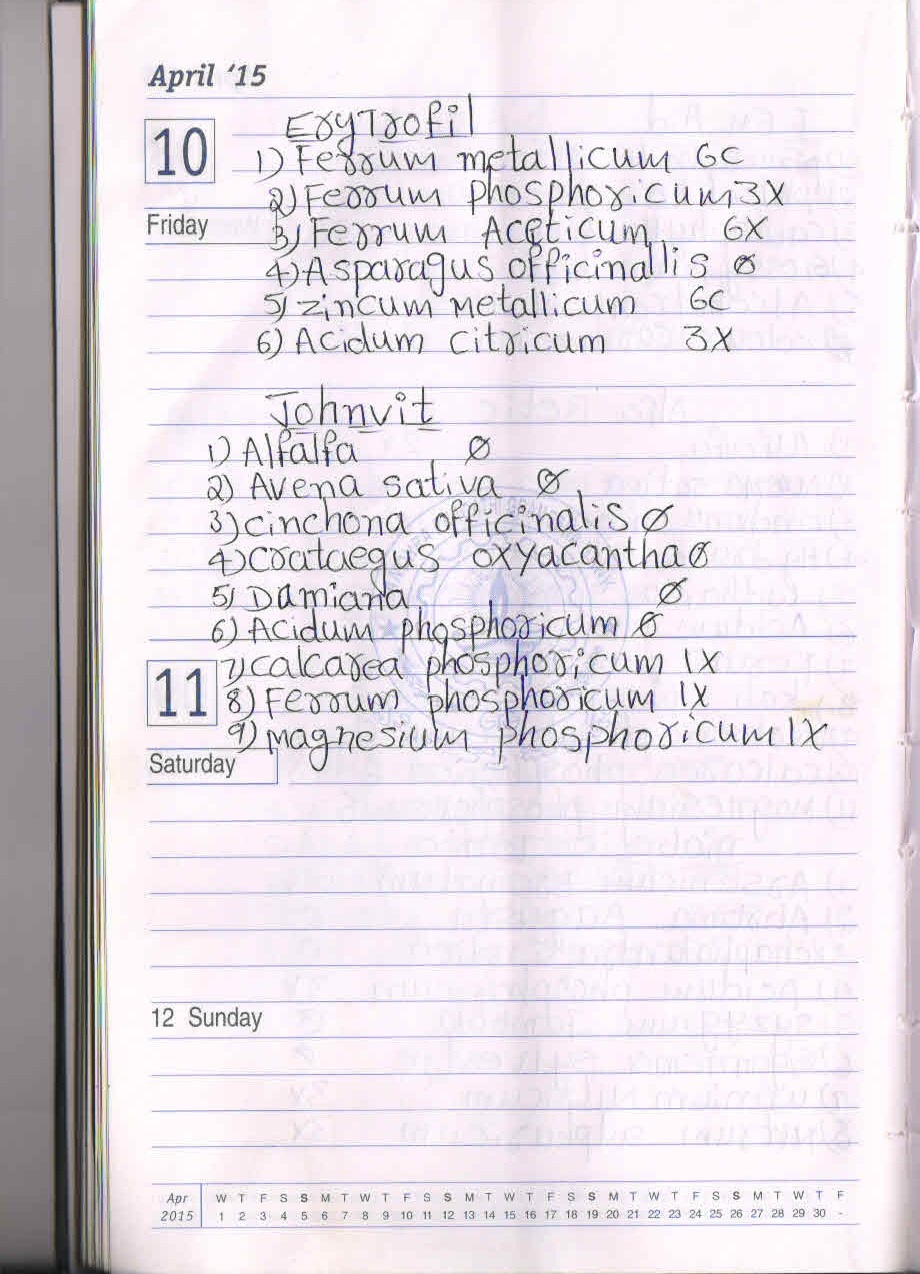 April '15
10
Friday
EryTrofil
1) Ferrum metallicum 6C
2) Ferrum phosphoricum 3X
3) Ferrum Aceticum 6X
4) Asparagus officinallis ø
5) Zincum Metallicum 6C
6) Acidum citricum 3X
Johnvit
1) Alfalfa ø
2) Avena sativa ø
3) cinchona officinalis ø
4) crataegus oxyacantha ø
5) Damiana ø
6) Acidum phosphoricum ø
11
Saturday
7) calcarea phosphoricum 1X
8) Ferrum phosphoricum 1X
9) magnesium phosphoricum 1X
12 Sunday
Apr W T F S S M T W T F S S M T W T F S S M T W T F S S M T W T F
2015 1 2 3 4 5 6 7 8 9 10 11 12 13 14 15 16 17 18 19 20 21 22 23 24 25 26 27 28 29 30 -